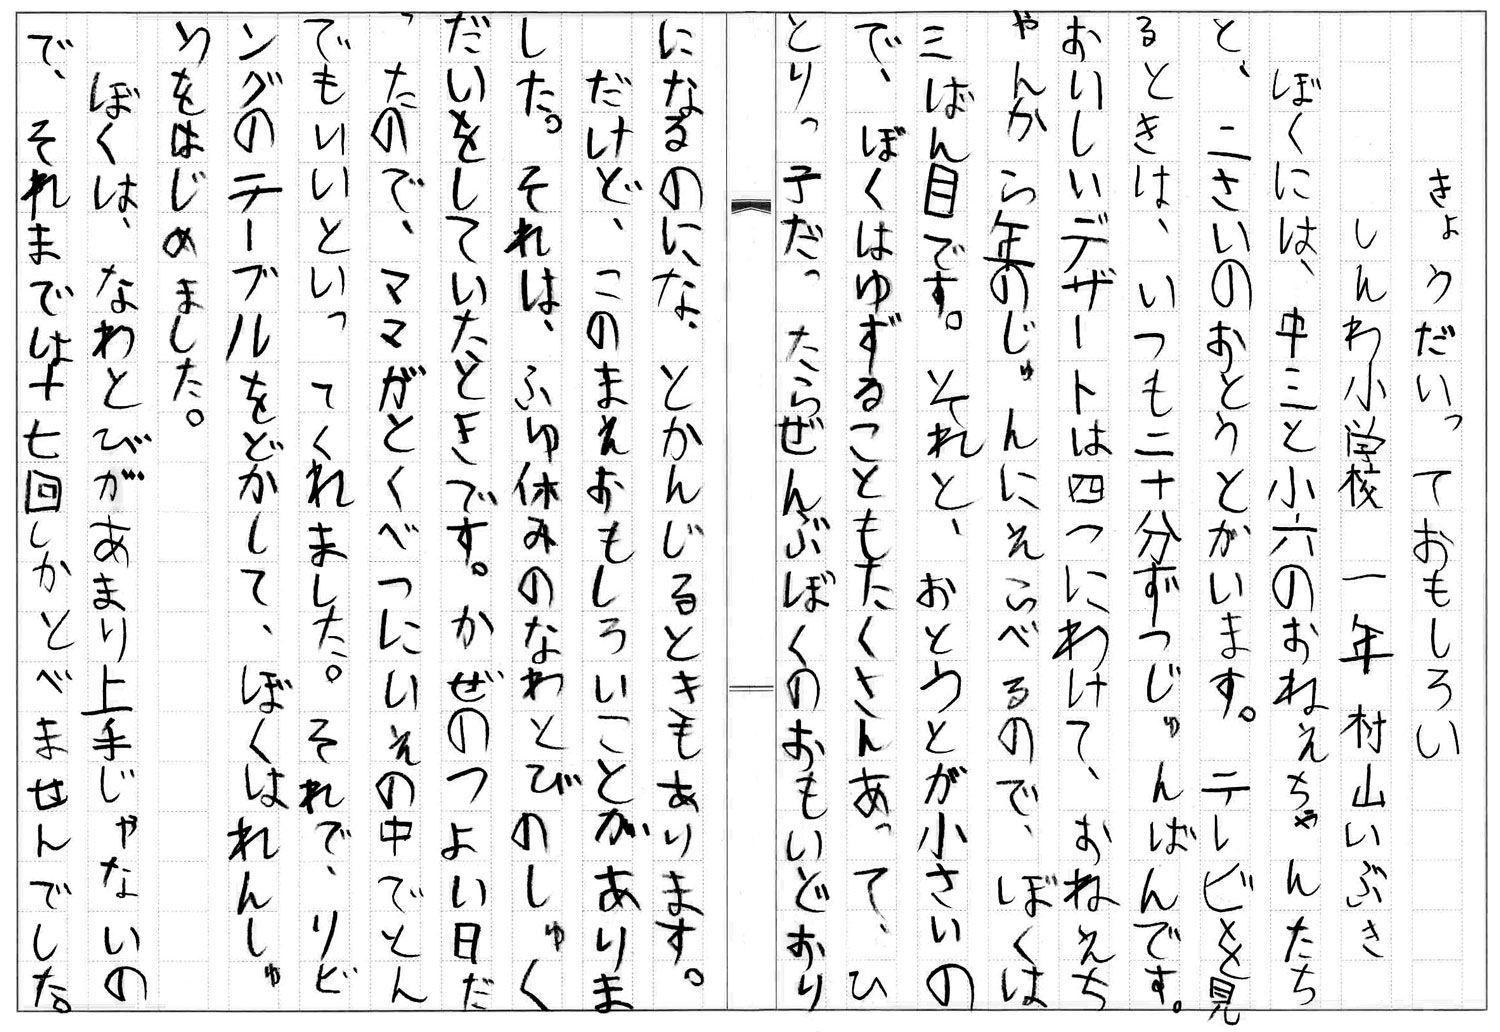 きょうだいっておもしろい
しんわ小学校 一年 村山いぶき
ぼくには、中三と小六のおねえちゃんたち
と、二さいのおとうとがいます。テレビを見
るときは、いつも二十分ずつじゅんばんです。
おいしいデザートは四つにわけて、おねえち
ゃんから年のじゅんにえらべるので、ぼくは
三ばん目です。それと、おとうとが小さいの
で、ぼくはゆずることもたくさんあって、ひ
とりっ子だったらぜんぶぼくのおもいどおり
になるのにな、とかんじるときもあります。
だけど、このまえおもしろいことがありま
した。それは、ふゆ休みのなわとびのしゅく
だいをしていたときです。かぜのつよい日だ
ったので、ママがとくべつにいえの中でとん
でもいいといってくれました。それで、リビ
ングのテーブルをどかして、ぼくはれんしゅ
うをはじめました。
ぼくは、なわとびがあまり上手じゃないの
で、それまでは十七回しかとべませんでした。